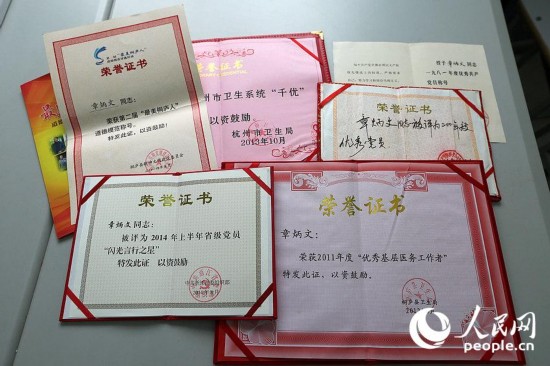 荣誉证书
章炳文 同志:
荣获第二届“最美桐庐人”
道德模范称号。
特发此证,以资鼓励!
荣誉证书
州市卫生系统“千优”
以资鼓励
杭州市卫生局
2013年10月
授予章炳文同志
一九八一年度
荣誉证书
章炳文同志被评为
优秀党员
荣誉证书
章炳文同志:
被评为2014年上半年省级党员
“闪光言行之星”
特发此证 以资鼓励
荣誉证书
章炳文:
荣获2011年度“优秀基层医务工作者”
特发此证,以资鼓励。
桐庐县卫生局
人民网
people.cn